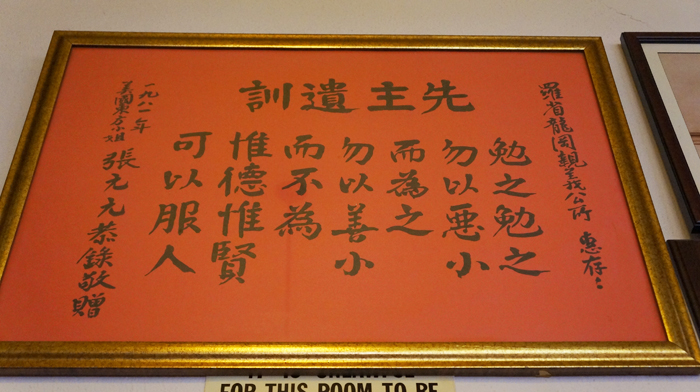 羅省龍岡親義公所 惠存
先主遺訓
勉之勉之
勿以悪小
而為之
勿以善小
而不為
惟德惟賢
可以服人
一九八一年
美國東方小姐 張元元恭錄敬贈
FOR THIS ROOM TO BE